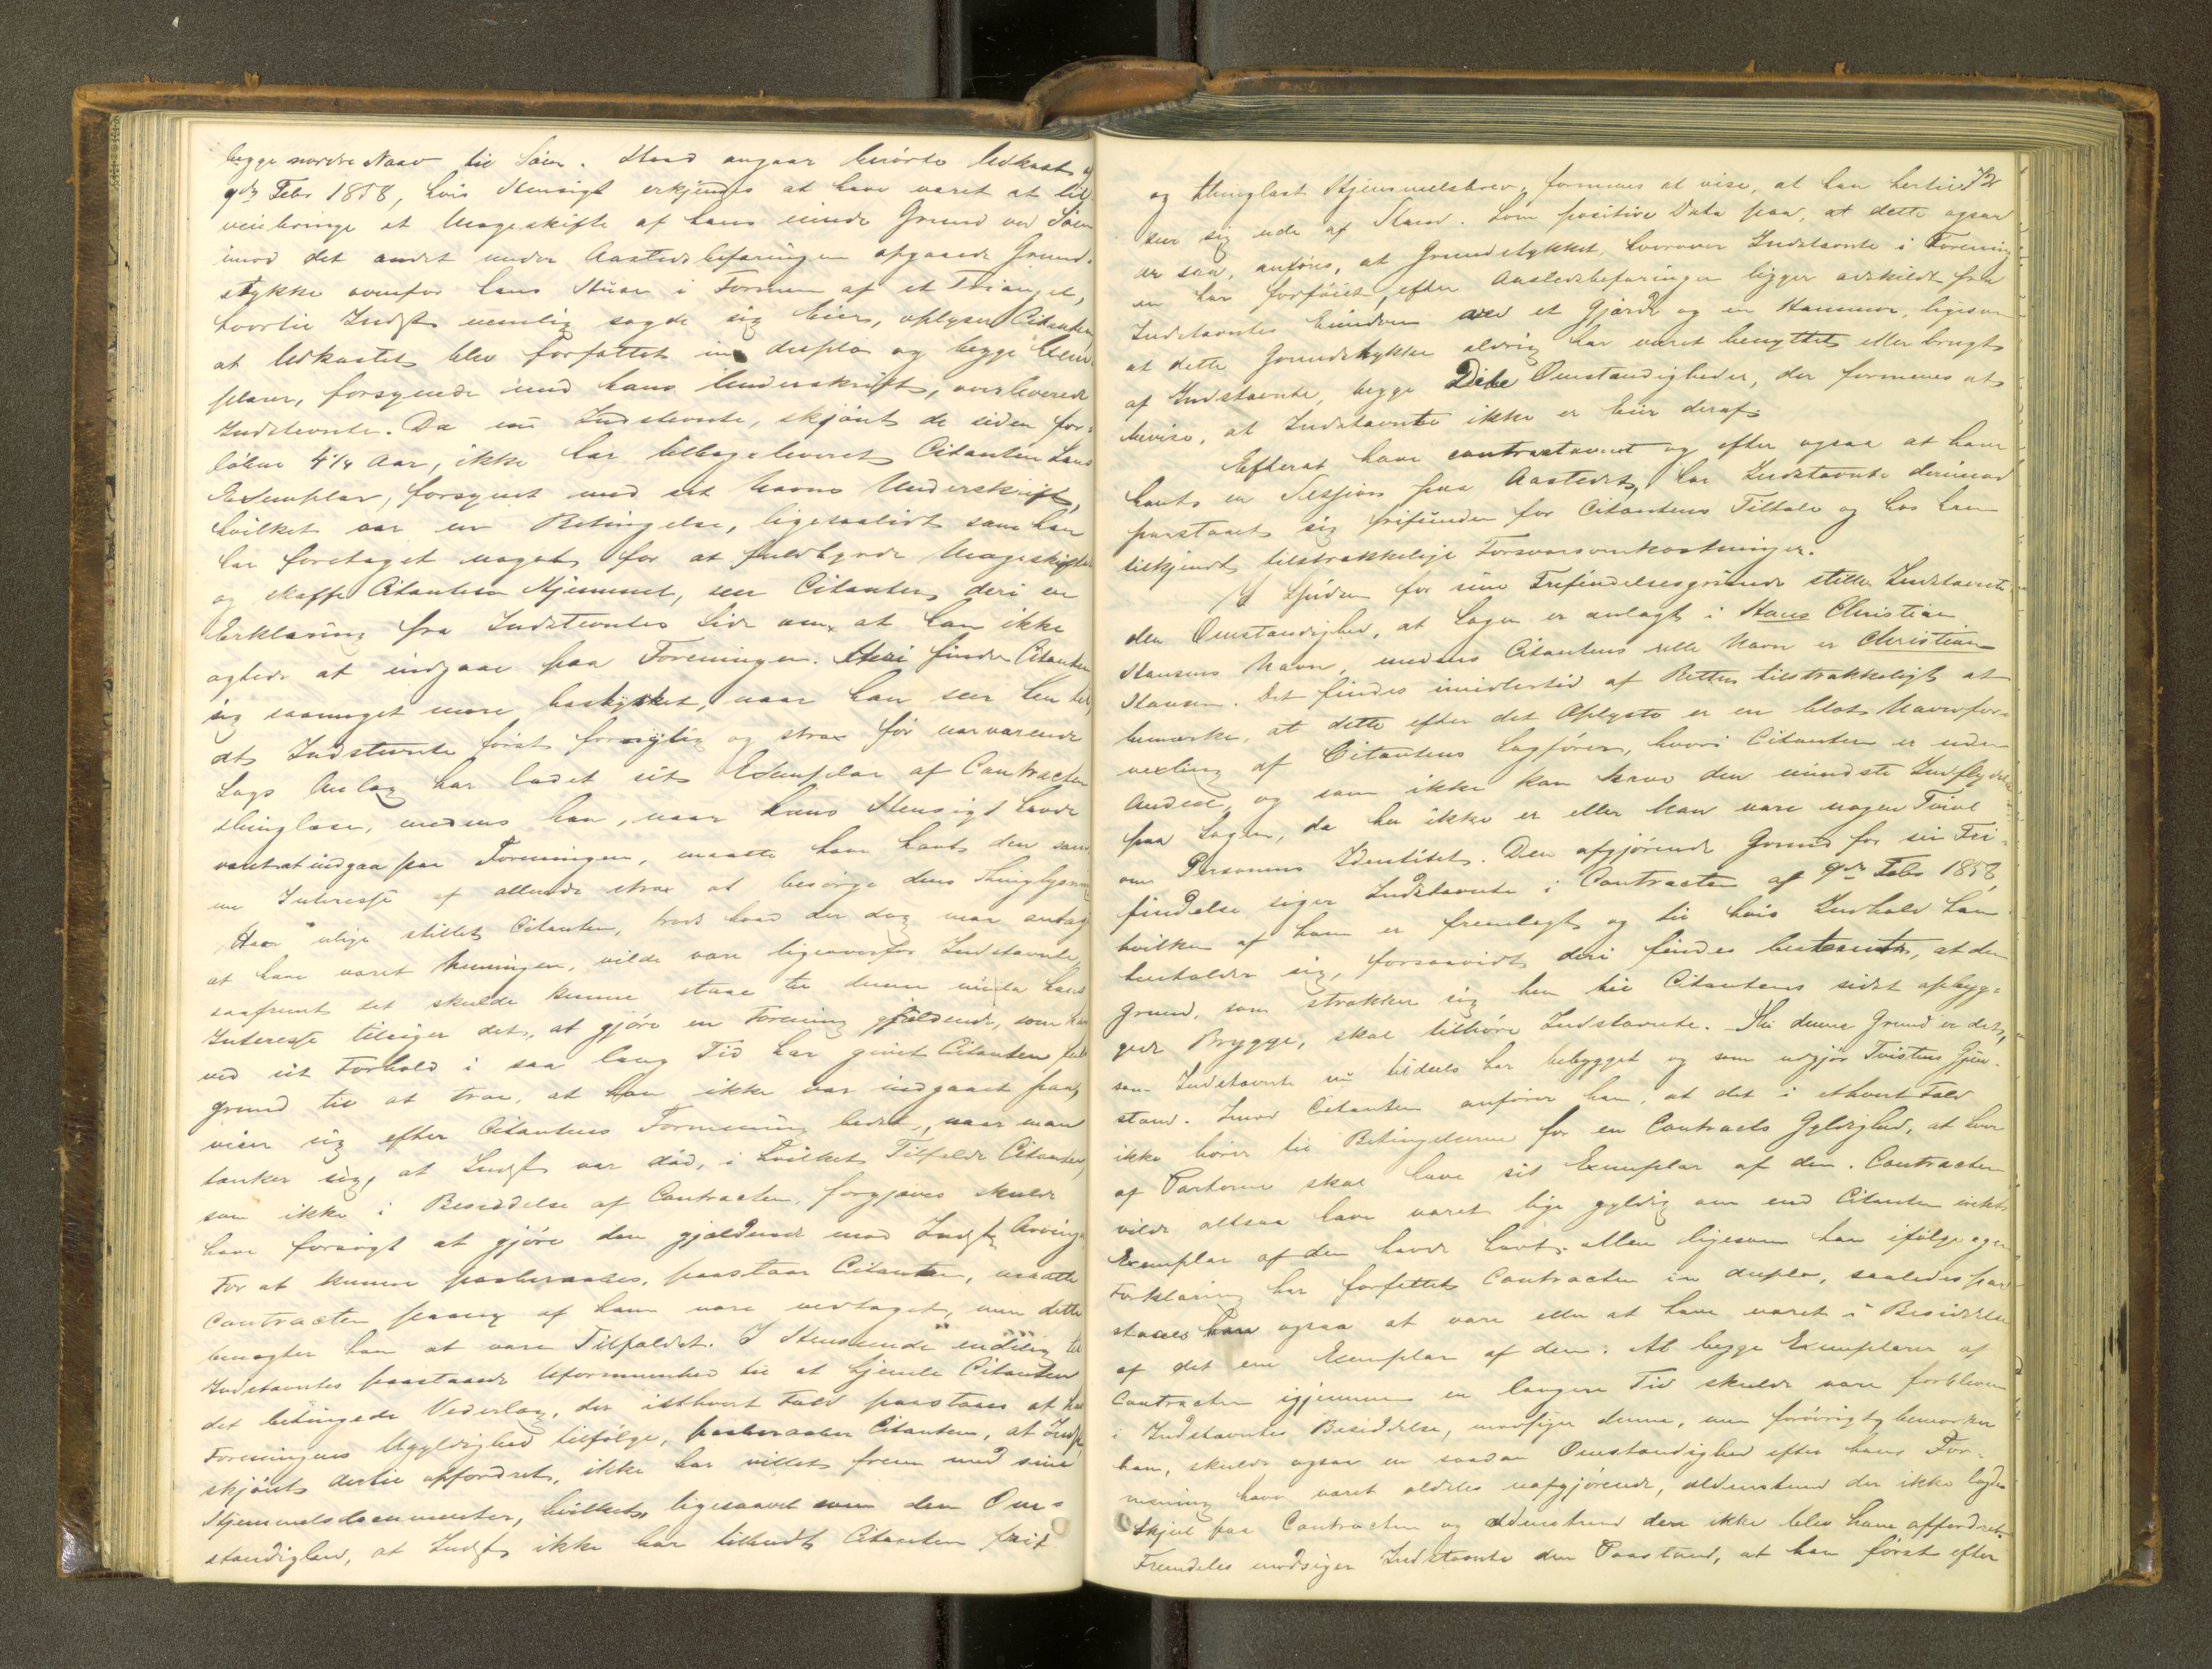 begge nordre Naav til Søen. Hvad angaar berørte Udkast af
9de Febr 1858, hvis Hensigt erkjendes at have været at til-
veiebringe et Mageskifte af hans inde Grund ved Søen
imod det andet under Aastedsbefaringen opgaaede Grund-
stykke ovenfor hans Huse i Formen af et Triangel,
hvortil Indst nemlig sagde sig Eier, oplyser Citanten
at Udkastet blev forfattet in duplo og begge Exem-
plarer, forsynede med hans Underskrift, overleverede
Indstevnte. Da nu Indstevnte, skjønt de siden for-
løbne 4 1/4 Aar, ikke har tilbageleveret Citanten hans
Exemplar, forsynet med sit Navns Underskrift,
hvilket var en Betingelse, ligesaalidt som han
har foretaget noget for at fuldbyrde Mageskiftet
og skaffe Citanten Hjemmel, ser Citanten deri en
Erklæring fra Indstevntes Side om, at han ikke
agtede at indgaae paa Foreningen. Heri finder Citanten
sig saameget mere bestyrket, naar han seer hen til,
at Indstevnte først fornylig og strax før nærværende
Sags Anlæg har ladet sit Exemplar af Contracten
thinglæse, medens han, naar hans Hensigt havde
været at indgaa paa Foreningen, maatte have havt den sam-
me Interesse af allerede strax at besørge dens Thinglysning
Hvor ulige stillet Citanten, trods hvad der dog maa antages
at have været Meningen, vilde være ligeoverfor Indstevnte,
saafremt det skulde kunne staae til denne naar hans
Interesse tilsiger det, at gjøre en Forening gjældende, som han
ved sit Forhold i saa lang Tid har givet Citanten fuld
Grund til at troe, at han ikke var indgaaet paa,
viser sig efter Citantens Formening bedst, naar man
tænker sig, at Indst var død, i hvilket Tilfælde Citanten,
som ikke i Besiddelse af Contracten, forgjæves skulde
have forsøgt at gjøre den gjældende mod Indst Arvinger
For at kunne paaberaabes, paastaar Citanten, maatte
Contracten paany af ham være vedtaget, men dette
benægter han at være Tilfældet. I Henseende endelig til
Indstævntes paastaaede Uformuenhed til at hjemle Citanten
det betingede Vederlag, der isthvert Fald paastaaes at have
Foreningens Ugyldighed tilfølge, paaberaaber Citanten, at Indst,
skjønt dertil opfordret, ikke har villet frem med sine
Hjemmelsdocumenter, hvilket, ligesaavel som den Om-
stændighed, at Indst ikke har tilbudt Citanten frit
og thinglæst Hjemmelsbrev, formenes at vise, at han hertil
seer sig ude af Stand. Som positive Data paa, at dette ogsaa
er saa, anføres, at Grundstykket, hvorover Indstævnte i Forening
en har forføiet, efter Aastedsbefaringen ligger adskildt fra
Indstævntes Eiendom ved et Gjærde og en Hammer, ligesom
at dette Grundstykke aldrig har været benyttet eller brugt
af Indstævnte, begge Dele Omstændigheder, der formenes at
bevise, at Indstævnte ikke er Eier deraf.
Efterat have contracteret og efter ogsaa at have
havt en Session paa Aastedet, har Indstævnte derimod
paastaaet sig frifunden for Citantens Tiltale og hos ham
tilkjendt tilstrækkelige Forsvarsomkostninger.
I Spidsen for sine Frifindelsesgrunde stiller Indstævnte
den Omstændighed, at Sagen er anlagt i Hans Christian
Hansens Navn, medens Citantens rette Navn er Christian
Hansen. Det findes imidlertid af Retten tilstrækkeligt at
bemærke, at dette efter det Oplyste er en blot Navnefor-
vexling af Citantens Sagfører, hvori Citanten er uden
Andeel, og som ikke kan have den mindste Indflydelse
paa Sagen, da her ikke er eller kan være nogen Tvivl
om Personens Identitet. Den afgjørende Grund for sin Fri-
findelse siger Indstævnte i Contracten af 9de Febr 1858,
hvilken af ham er fremlagt og til hvis Indhold han
henholder sig, forsaavidt deri findes bestemt, at den
Grund, som strækker sig hen til Citantens sidst opbyg-
gede Brygge, skal tilhøre Indstævnte. Thi denne Grund er det,
som Indstævnte nu tildeels har bebygget og som udgjør Tvistens Gjen-
stand. Imod Citanten anfører han, at det i ethvert Fald
ikke hører til Betingelserne for en Contracts Gyldighed, at hver
af Parterne skal have sit Exemplar af den. Contracten
vilde altsaa have været lige gyldig om end Citanten intet
Exemplar af den havde havt. Men ligesom han ifølge egen
Forklaring har forfattet Contracten in duplo, saaledes paa-
staaes han ogsaa at være eller at have været i Besiddelse
af det ene Exemplar af den. At begge Exemplarer af
Contracten igjennem en længere Tid skulde være forbleven
i Indstævntes Besiddelse, modsiger denne, men forøvrigt, bemærker
han, skulde ogsaa en saadan Omstændighed efter hans For-
mening have været aldeles uafgjørende, aldenstund der ikke lagdes
Skjul paa Contracten og aldenstund den ikke blev ham affordret.
Fremdeles modsiger Indstævnte den Paastand, at han først efter